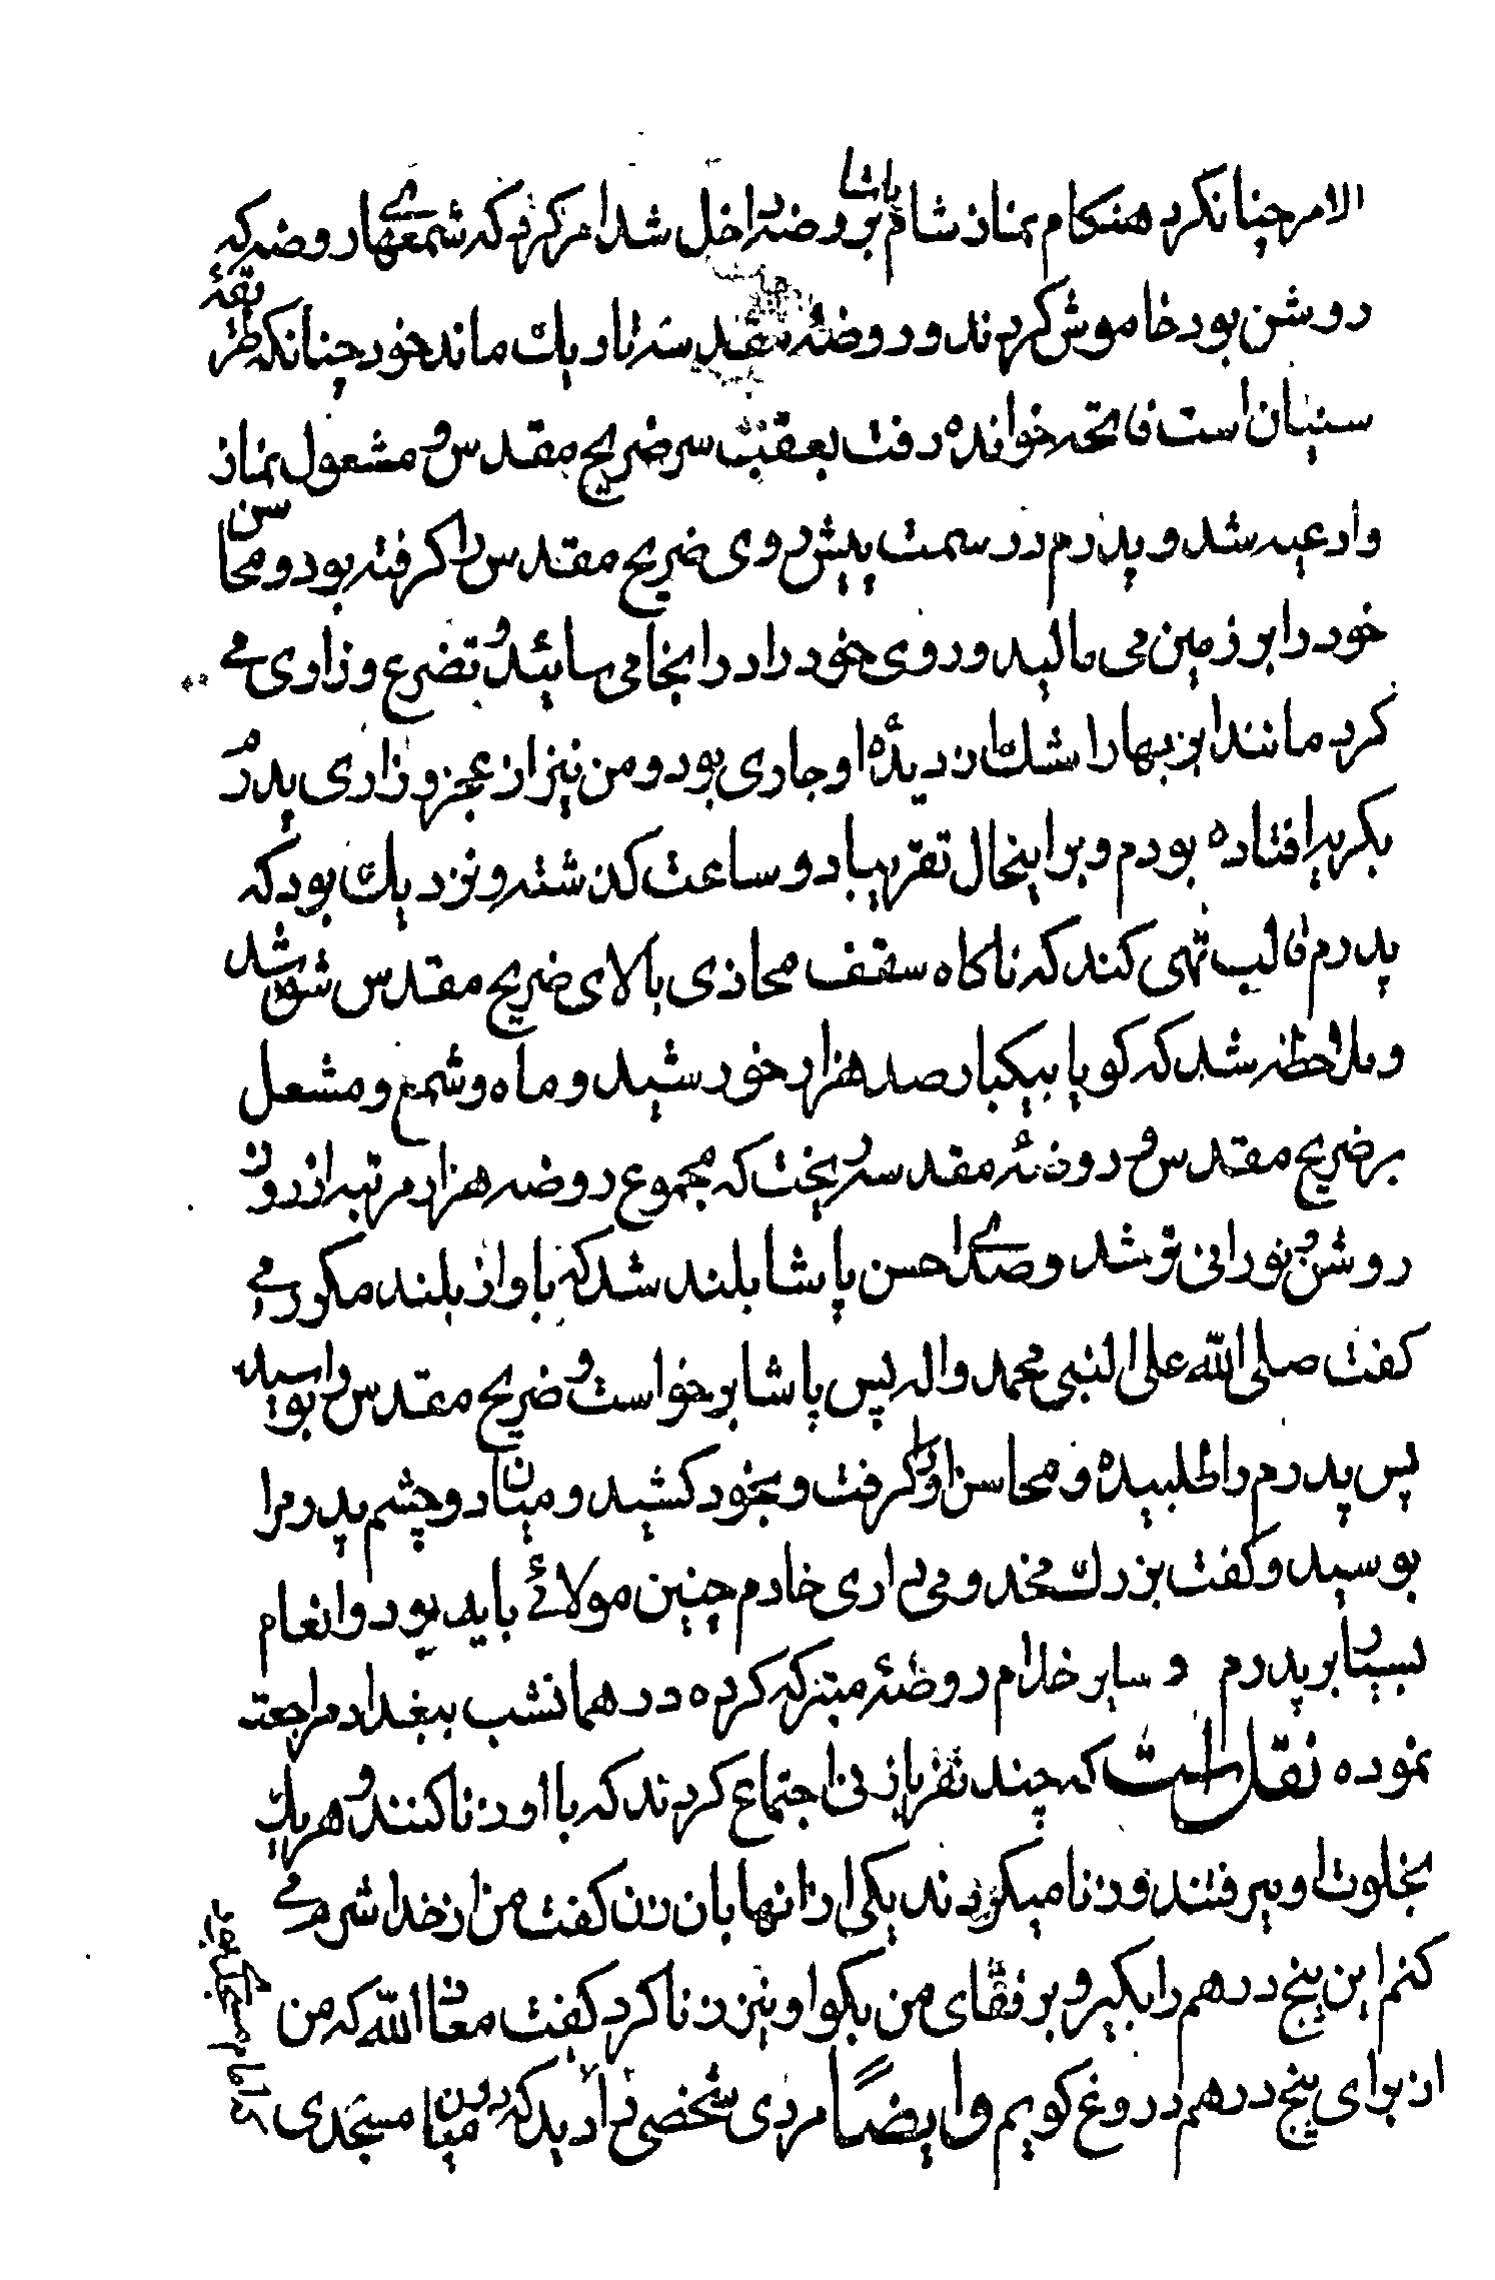 الامر چنان کرد هنکام نماز شام پاشا بروضه داخل شد امر کرد که شمعهای روضه که
روشن بود خاموش کردند و روضهٔ مقدسه تاریك ماند خود چنانکه طریقهٔ
سنیان است فاتحه خوانده رفت بعقب سر ضریح مقدس و مشغول نماز
و ادعیه شد و پدرم در سمت پیش روی ضریح مقدس را کرفته بود و محاسن
خود را بر زمین می مالید و روی خود را در انجا می سائید و تضرع و زاری می
کرد مانند ابر بهار اشك از دیدهٔ او جاری بود و من نیز از عجز و زاری پدرم
بکریه افتاده بودم و بر اینحال تقریبا دو ساعت کذشته و نزدیك بود که
پدرم قالب تهی کند که ناکاه سقف محاذی بالای ضریح مقدس شق شد
و ملاحظه شد که کویا بیکبار صد هزار خورشید و ماه و شمع و مشعل
بر ضریح مقدس و روضهٔ مقدسه ریخت که مجموع روضه هزار مرتبه از روز
روشن و نورانی تر شد و صدای حسن پاشا بلند شد که باواز بلند مکرر می
کفت صلی الله علی النبی محمد و اله پس پاشا برخواست و ضریح مقدس را بوسید
پس پدرم را طلبیده و محاسن او را کرفت و بخود کشید و میان دو چشم پدرم را
بوسید و کفت بزرك مخدومی داری خادم چنین مولائی باید بود و انعام
بسیار بر پدرم و سایر خدام روضهٔ متبرکه کرده در همانشب ببغداد مراجعت
نموده نقل است که چند نفر با زنی اجتماع کردند که با او زنا کنند و هر یك
بخلوت او میرفتند و زنا میکردند یکی از انها بان زن کفت من از خدا شرم می
کنم این پنج درهم را بکیر و برفقای من بکو او نیز زنا کرد کفت معاذ الله که من
از برای پنج درهم دروغ کویم و ایضًا مردی شخصی را دید که در میان مسجدی